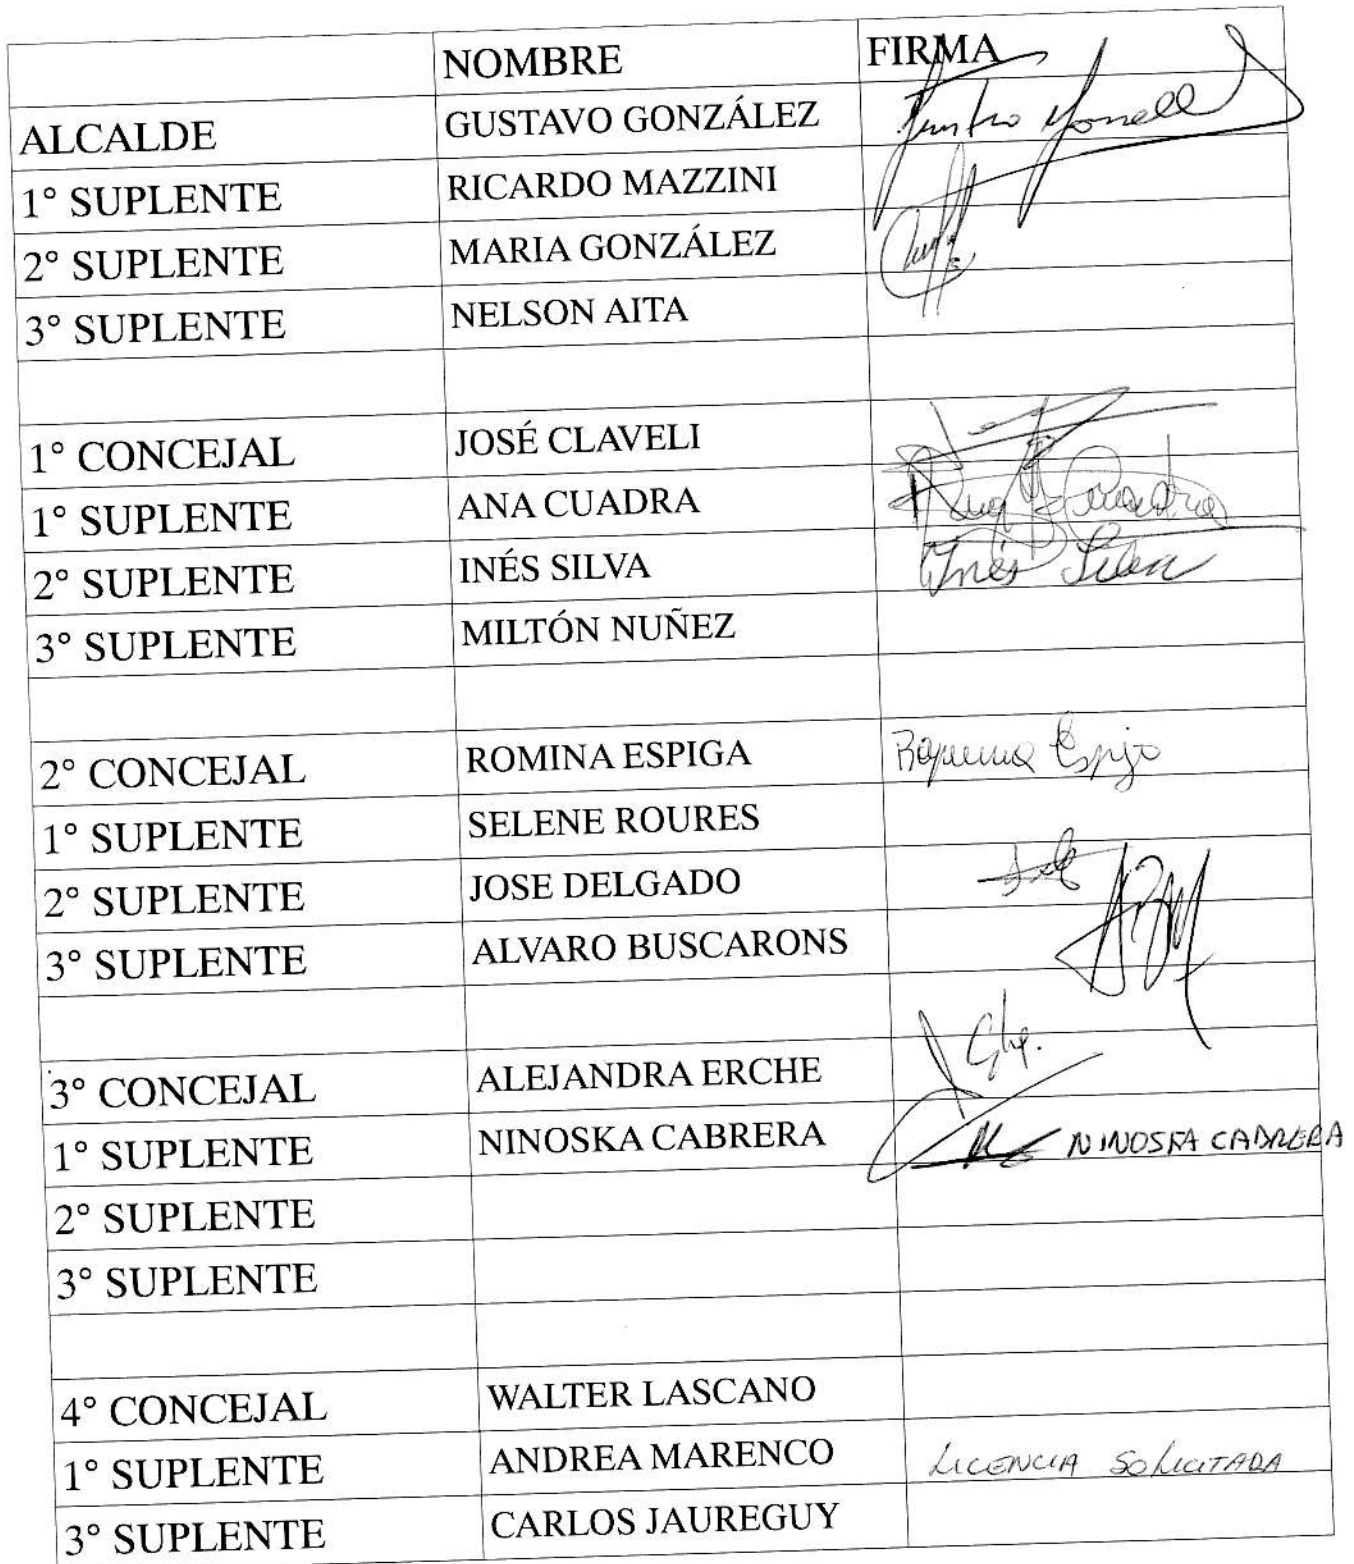 NOMBRE FIRMA
ALCALDE GUSTAVO GONZÁLEZ
1° SUPLENTE RICARDO MAZZINI
2° SUPLENTE MARIA GONZÁLEZ
3° SUPLENTE NELSON AITA
1° CONCEJAL JOSÉ CLAVELI
1° SUPLENTE ANA CUADRA
2° SUPLENTE INÉS SILVA Inés Silva
3° SUPLENTE MILTÓN NUÑEZ
2° CONCEJAL ROMINA ESPIGA
1° SUPLENTE SELENE ROURES
2° SUPLENTE JOSE DELGADO
3° SUPLENTE ALVARO BUSCARONS
3° CONCEJAL ALEJANDRA ERCHE
1° SUPLENTE NINOSKA CABRERA NINOSKA CABRERA
2° SUPLENTE
3° SUPLENTE
4° CONCEJAL WALTER LASCANO
1° SUPLENTE ANDREA MARENCO LICENCIA SOLICITADA
3° SUPLENTE CARLOS JAUREGUY